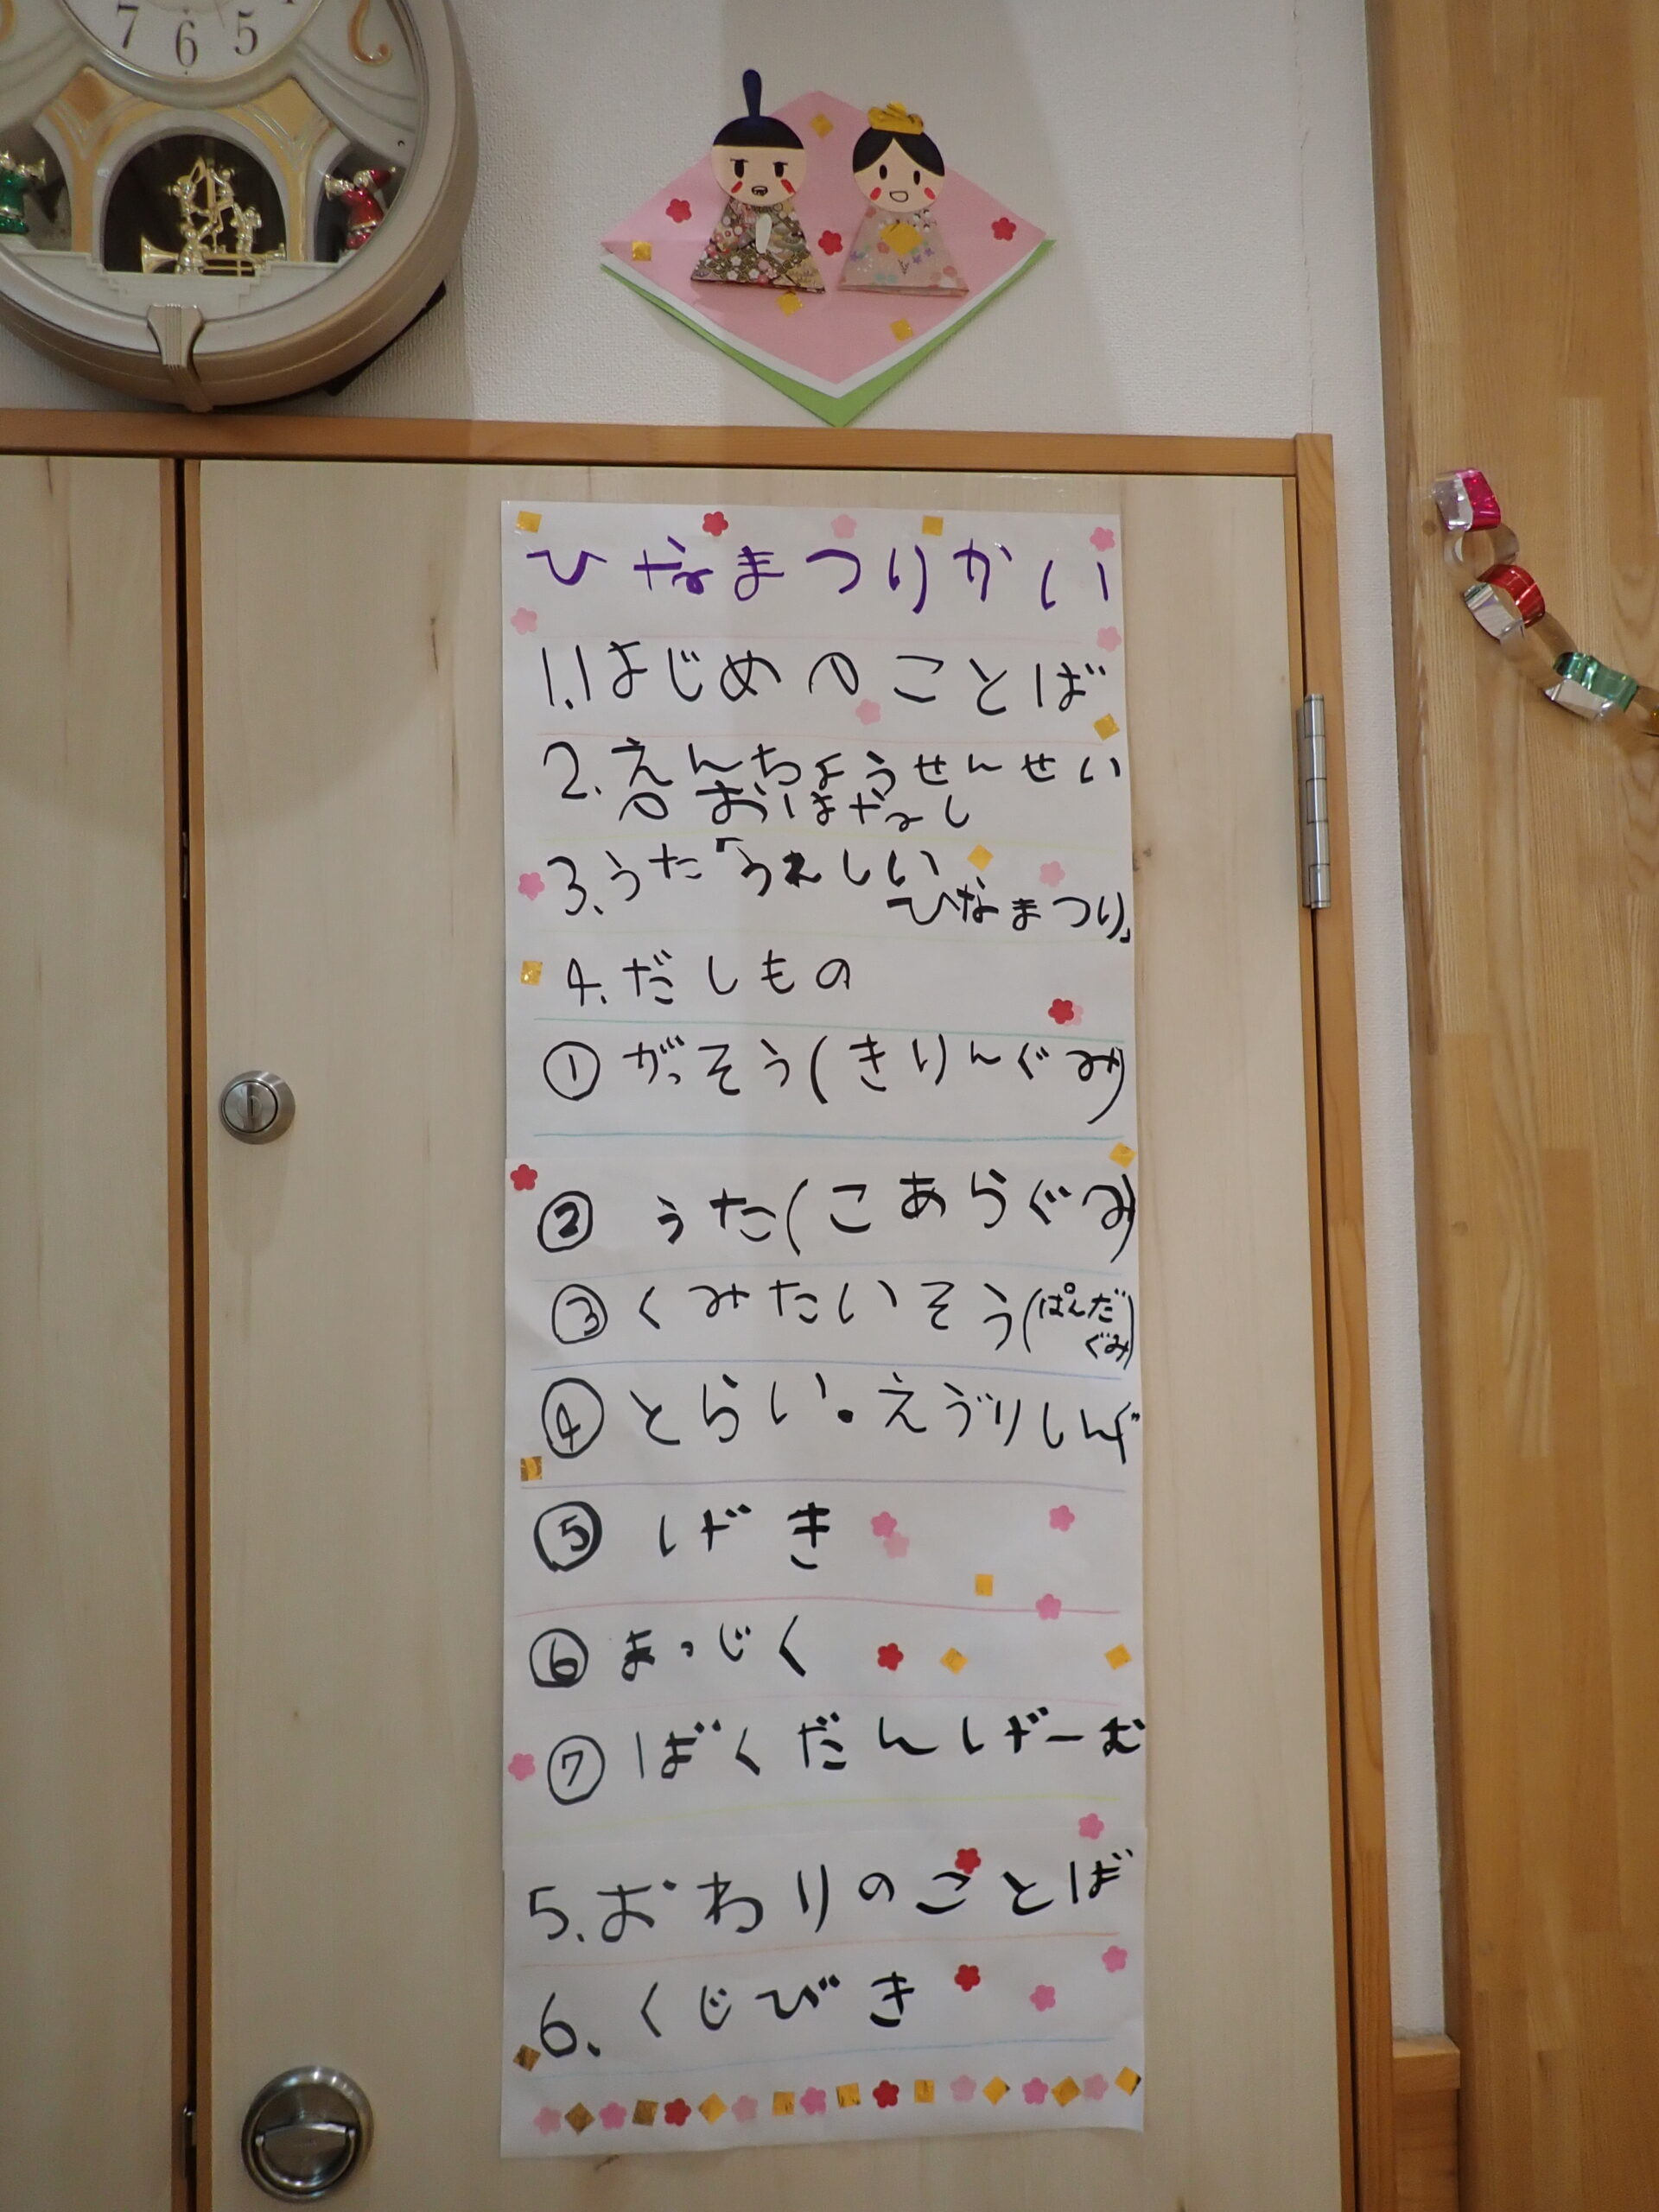 7 6 5
ひなまつりかい
1.はじめのことば
2.えんちょうせんせい
のおはなし
3.うた「うれしい
ひなまつり」
4.だしもの
①がっそう(きりんぐみ)
②うた(こあらぐみ)
③くみたいそう(ぱんだ
ぐみ)
④とらい・えゔりしんぐ
⑤げき
⑥まっじく
⑦ばくだんげーむ
5.おわりのことば
6.くじびき